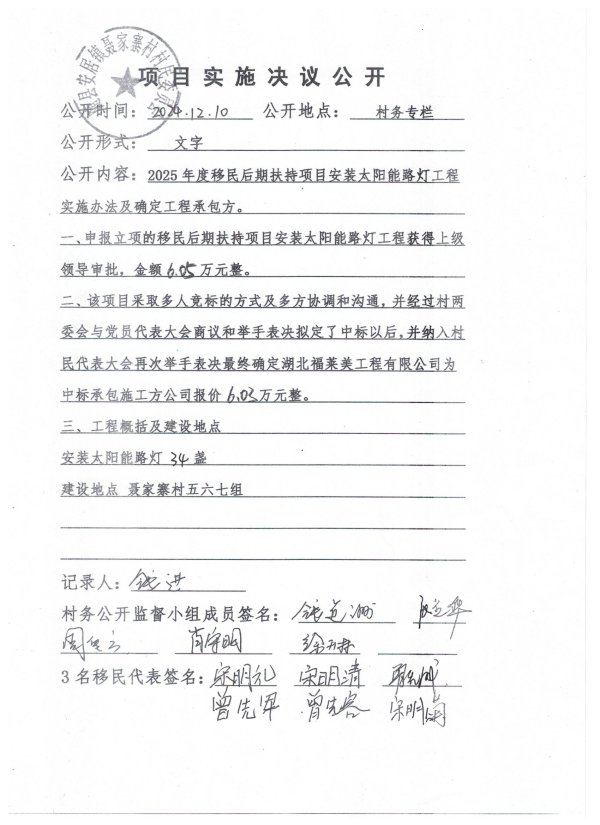 县安居镇聂家寨村村民委员会
项目实施决议公开
公开时间：2024.12.10 公开地点：村务专栏
公开形式：文字
公开内容：2025年度移民后期扶持项目安装太阳能路灯工程
实施办法及确定工程承包方。
一、申报立项的移民后期扶持项目安装太阳能路灯工程获得上级
领导审批，金额6.05万元整。
二、该项目采取多人竞标的方式及多方协调和沟通，并经过村两
委会与党员代表大会商议和举手表决拟定了中标以后，并纳入村
民代表大会再次举手表决最终确定湖北福莱美工程有限公司为
中标承包施工方公司报价6.03万元整。
三、工程概括及建设地点
安装太阳能路灯 34盏
建设地点 聂家寨村五六七组
记录人：
村务公开监督小组成员签名：
肖守明
3名移民代表签名：宋明礼 宋明清
曾先军 曾先富 宋明